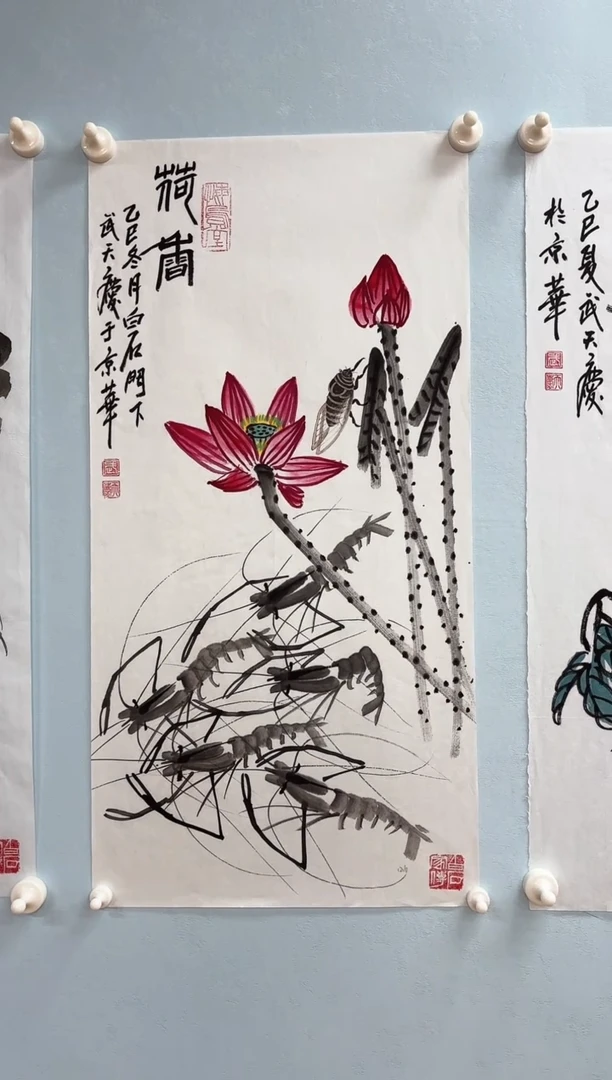 荷香
乙巳冬月白石門下
武天慶于京華
乙巳夏武天慶
於京華